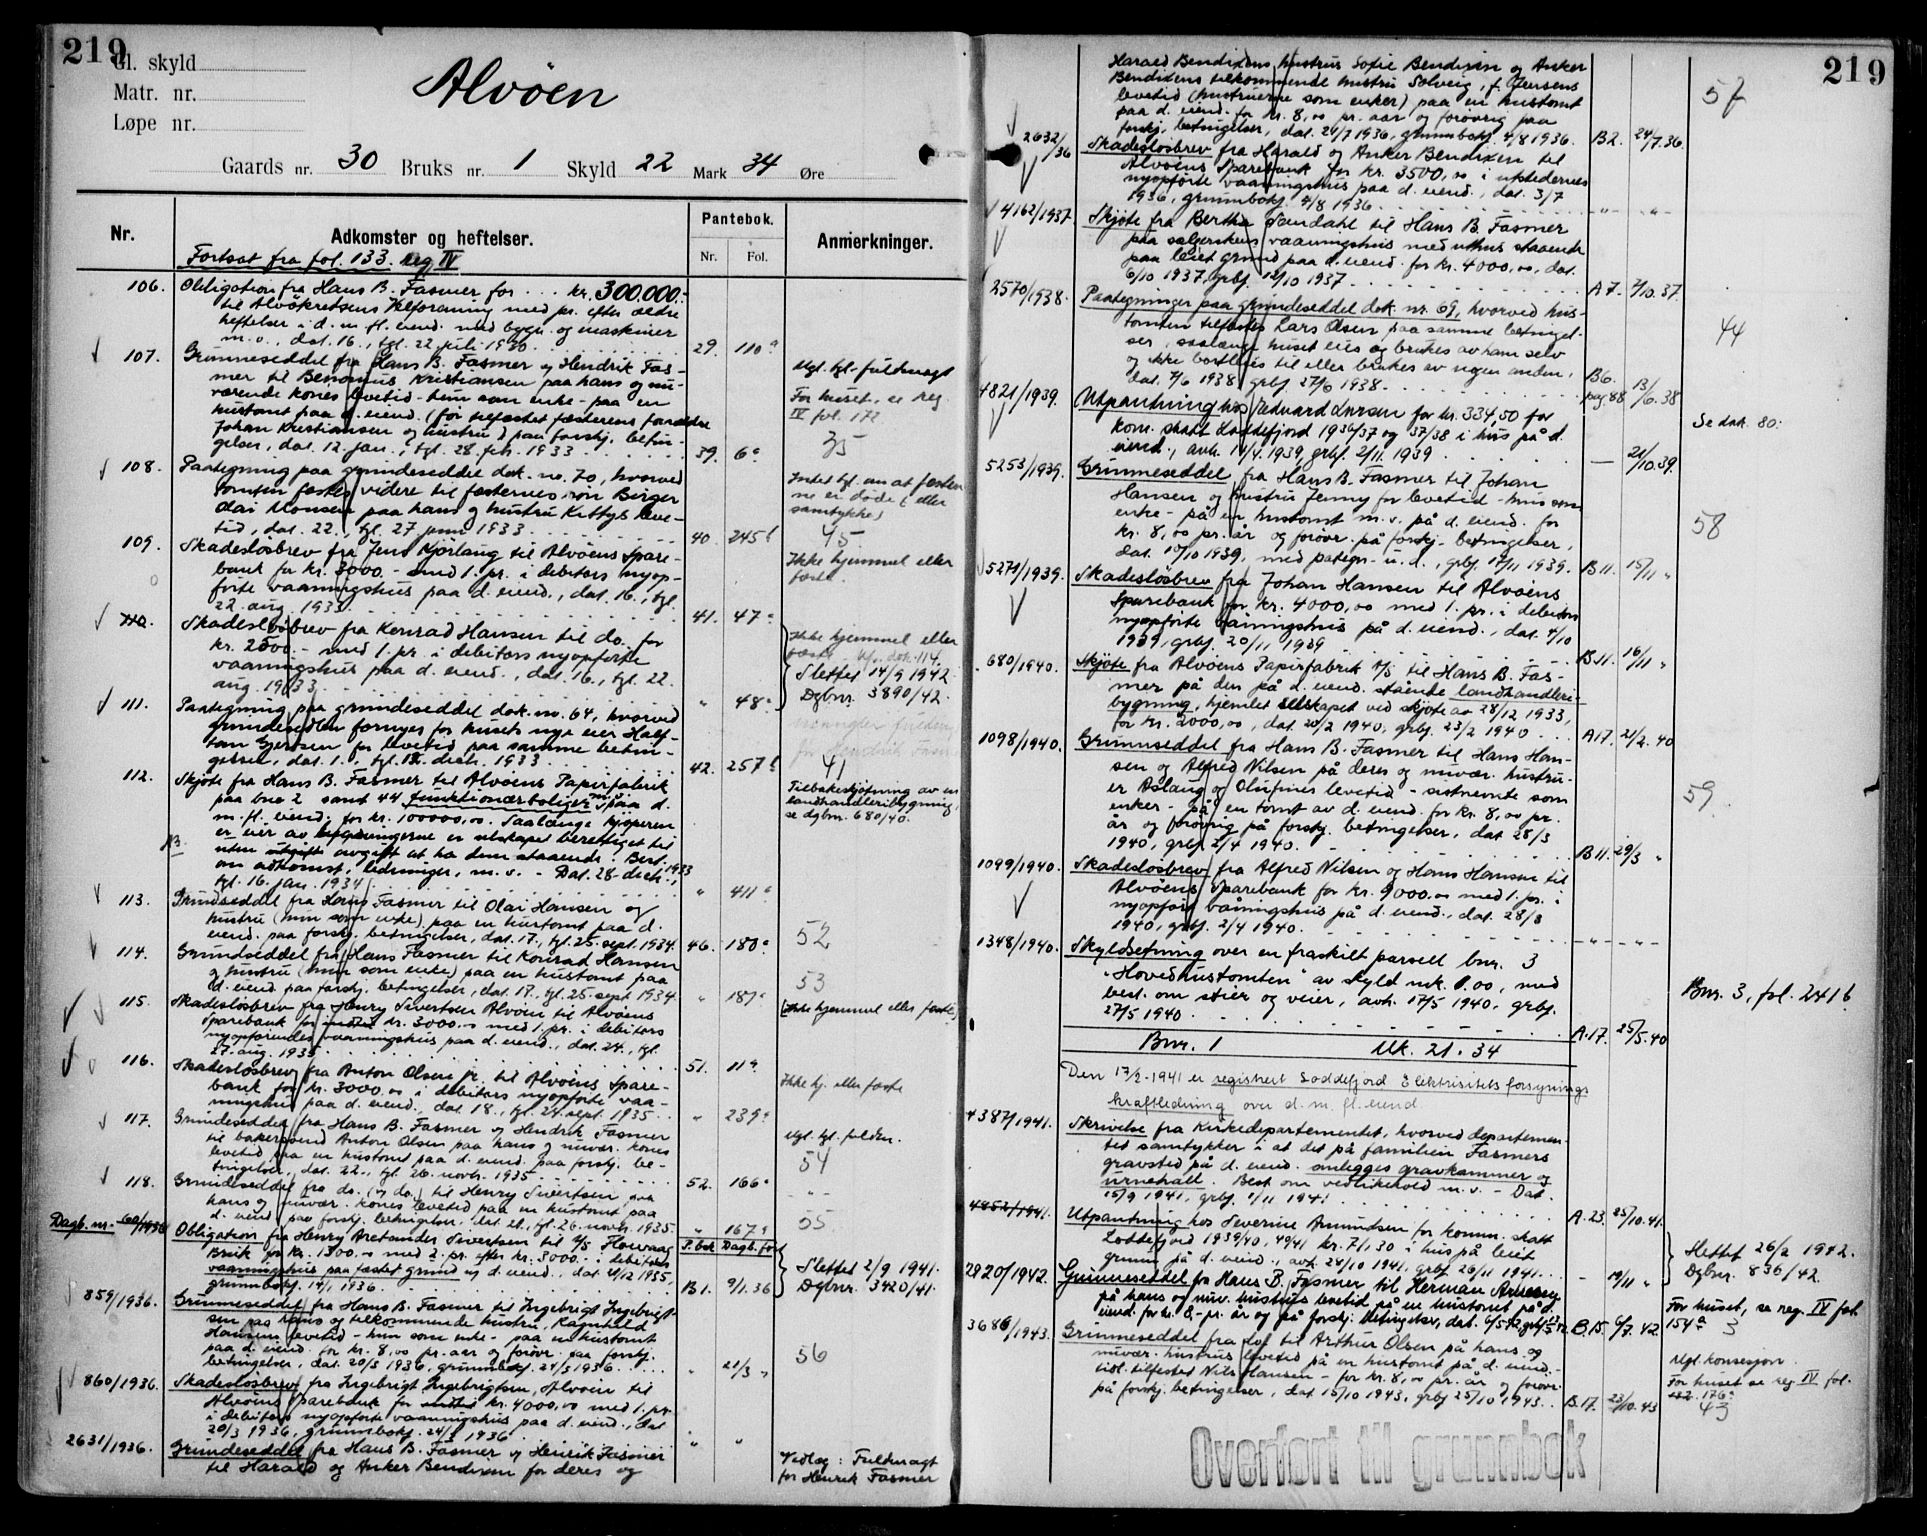 219
Gl. skyld
Matr. nr.
Løpe nr.
Alvøen
Gaards nr. 30 Bruks nr. 1 Skyld 22 Mark 34 Øre
Nr.
Adkomster og heftelser.
Pantebok.
Nr. Fol.
Anmerkninger.
Fortsat fra fol. 133. reg IV
106. Obligation fra Hans B. Fasmer for ... kr. 300.000.-
til Alvøkretsens Velforening med pr. efter ældre
heftelser i d. m. fl. eiend. med bygn. og maskiner
m. v., dat. 16., tgl. 22. juli 1930. 29. 110a
107. Grunneseddel fra Hans B. Fasmer og Hendrik Fas-
mer til Kristiansen paa hans og nu-
værende kones levetid - hun som enke - paa en
hustomt paa d. eiend. (før tilfæstet fæsterens forældre
Johan Kristiansen og hustru) paa forskj. betin-
gelser, dat. 12. jan., tgl. 28. feb. 1933 39. 6a
Mgl. tgl. fuldmagt
For huset, se reg.
IV fol. 172
35
108. Paategning paa grundeseddel dok. no. 70, hvorved
tomten fæstes videre til fæsternes søn Birger
Olai Monsen paa hans og hustru Kittys leve-
tid, dat. 22., tgl. 27 juni 1933 40. 245b
Intet tgl. om at fæster-
ne er døde (eller
samtykke)
45
109. Skadesløsbrev fra Jens Kjørlaug til Alvøens Spare-
bank for kr. 3000.- med 1. pr. i debitors nyop-
førte vaaningshus paa d. eiend., dat. 16., tgl.
22. aug. 1933 41. 47a
Ikke hjemmel eller
fæste.
110. Skadesløsbrev fra Konrad Hansen til do. for
kr. 2500.- med 1. pr. i debitors nyopførte
vaaningshus paa d. eiend., dat. 16., tgl. 22.
aug. 1933 " 48a
Ikke hjemmel eller
fæste dok. 114.
Slettet 14/9 1942
Dgbnr. 3890/42.
111. Paategning paa grundeseddel dok. no. 64, hvorved
grundesedlen fornyes for husets nye eier Half-
tan Gjertsen for levetid paa samme betin-
gelser, dat. 1., tgl. 12. decb. 1933 42. 257b
41
112. Skjøte fra Hans B. Fasmer til Alvøens Papirfabrik
paa bno 2 samt 44 funktionærboliger m. v. paa d.
m. fl. eiend. for kr. 100000,00. Saalænge kjøperen
er eier av bygningerne er selskapet berettiget til
uten utgift avgift at ha dem staaende. Best.
om adkomst, ledninger, m. v. - Dat. 28. decb. 1933
tgl. 16. jan. 1934 " 411a
NB
Tilbakeskjøtning av en
landhandleribygning,
se dgbnr. 680/40.
113. Grundseddel fra Hans Fasmer til Olai Hansen og
hustru (hun som enke) paa en hustomt paa d.
eiend. paa forskj. betingelser, dat. 17., tgl. 25. sept. 1934. 46. 180a
52
114. Grundseddel fra Hans Fasmer til Konrad Hansen
og hustru (hun som enke) paa en hustomt paa
d. eiend. paa forskj. betingelser, dat. 17., tgl. 25. sept. 1934. " 181a
53
115. Skadesløsbrev fra Henry Sivertsen Alvøen til Alvøens
Sparebank for indtil kr. 3000.00 med 1. pr. i debitors
nyopførendes vaaningshus paa d. eiend., dat. 24., tgl.
27. aug. 1935 51. 11a
(Ikke hjemmel eller fæste)
116. Skadesløsbrev fra Anton Olsen jr. til Alvøens Spare-
bank for kr. 3000.00 i debitors nyopførte vaa-
ningshus paa d. eiend., dat. 18., tgl. 24. sept. 1935 " 239a
Ikke hj. eller fæste
117. Grundeseddel fra Hans B. Fasmer og Hendrik Fasmer
til bakersvend Anton Olsen paa hans og nuvær. kones
levetid paa en hustomt paa d. eiend. paa forskj. be-
tingelser, dat. 22., tgl. 26. novb. 1935 52. 166a
Mgl. tgl. fuldm.
54
118. Grundeseddel fra do. (og do.) til Henry Sivertsen paa
hans og nuvær. kones levetid paa en hustomt paa
d. eiend. paa forskj. betingelser, dat. 21., tgl. 26. novb. 1935 " 167a
55
P. bok Dagb. ført
Dagb. nr. 60/1936 Obligation fra Henry Aretander Sivertsen til A/S Houvaag
Bruk for kr. 1300.00 med 2. pr. efter kr. 3000.- i debitors
vaaningshus paa fæstet grund og d. eiend., dat. 21/12 1935,
grunnbokf. 14/1 1936 B1. 9/1.36
Slettet 2/9 1941.
Dgbnr. 3420/41.
859/1936. Grunneseddel fra Hans B. Fasmer til Ingebrigt Ingebrigt-
sen paa hans og tilkommende hustru, Ragnhild
Hansens levetid - hun som enke - paa en hustomt
paa d. eiend. for kr. 8,00 pr. aar og forøvr. paa forskj.
betingelser, dat. 20/3 1936, grunnbokf. 24/3 1936 " 21/3 "
56
860/1936. Skadesløsbrev fra Ingebrigt Ingebrigtsen, Alvøen til
Alvøens Sparebank for indtil kr. 4000,00 med 1. pr.
i debitors nyopførte vaaningshus paa d. eiend., dat.
20/3 1936, grunnbokf. 24/3 1936 " "
2631/1936. Grundeseddel fra Hans B. Fasmer og Henrik Fasmer
til Harald og Anker Bendixen for deres og
Vedlag: Fuldmagt
for Henrik Fasmer
219
Harald Bendixens hustrus Sofie Bendixen og Anker
Bendixens tilkommende hustru Solveig, f. Jensens
levetid (hustruerne som enker) paa en hustomt
paa d. eiend. for kr. 8,00 pr. aar og forøvrig paa
forskj. betingelser, dat. 24/7 1936, grunnbokf. 4/8 1936. B2. 24/7.36.
57
2632/36 Skadesløsbrev fra Harald og Anker Bendixen til
Alvøens Sparebank for kr. 3500,00 i utstedernes
nyopførte vaaningshus paa d. eiend., dat. 3/7
1936, grunnbokf. 4/8 1936 - " - - " -
4162/1937. Skjøte fra Bertha Søndahl til Hans B. Fasmer
paa sælgerskens vaaningshus med uthus staaende
paa leiet grund paa d. eiend. for kr. 4000,00, dat.
6/10 1937, grbf. 12/10 1937 A7. 7/10.37.
2570/1938. Paategninger paa grundeseddel dok. nr. 69, hvorved hus-
tomten tilfæstes Lars Olsen paa samme betingel-
ser, saalænge huset eies og brukes av ham selv
og ikke bortleies til eller brukes av nogen anden,
dat. 7/6 1938, grbf. 27/6 1938 B6. pag. 88 13/6.38
44
4821/1939. Utpantning hos Edvard Larsen for kr. 334,50 for
kom. skatt Laddefjord 1936/37 og 37/38 i hus på d.
eiend., avh. 11/4 1939, grbf. 2/11 1939 — 21/10.39.
Se dok. 80.
5253/1939. Grunneseddel fra Hans B. Fasmer til Johan
Hansen og hustru Jenny for levetid - hun som
enke - på en hustomt m. v. på d. eiend. for
kr. 8,00 pr. år og forøvr. på forskj. betingelser,
dat. 10/10 1939, med pategn. u. d., grbf. 17/11 1939. B11. 15/11 "
58
5271/1939. Skadesløsbrev fra Johan Hansen til Alvøens
Sparebank for kr. 4000,00 med 1. pr. i debitors
nyopførte våningshus på d. eiend., dat. 4/10
1939, grbf. 20/11 1939 B11. 16/11 "
680/1940. Skjøte fra Alvøens Papirfabrik A/S til Hans B. Fas-
mer på den på d. eiend. stående landhandleri-
bygning, hjemlet selskapet ved skjøte av 28/12 1933,
for kr. 2000,00, dat. 20/2 1940, grbf. 23/2 1940 A17. 21/2.40
1098/1940. Grunnseddel fra Hans B. Fasmer til Hans Han-
sen og Alfred Nilsen på deres og nuvær. hustru-
er Aslaug og Olufines levetid - sistnevnte som
enker - på en tomt av d. eiend. for kr. 8,00 pr.
år og forøvrig på forskj. betingelser, dat. 28/3
1940, grbf. 2/4 1940. B11. 29/3 "
59
1099/1940. Skadesløsbrev fra Alfred Nilsen og Hans Hansen til
Alvøens Sparebank for kr. 9000.00 med 1. pr. i
nyopført våningshus på d. eiend., dat. 28/3
1940, grbf. 2/4 1940. - " - - " -
1348/1940. Skyldsetning over en fraskilt parsell bnr. 3
"Hovedhustomten" av skyld mk. 1.00, med
best. om stier og veier, avh. 17/5 1940, grbf.
27/5 1940 A.17. 25/5.40
Bnr. 3, fol. 241b
Bnr. 1 Mk. 21.34
Den 17/2-1941 er registrert Loddefjord Elektrisitetsforsynings
kraftledning over d. m. fl. eiend.
4387/1941. Skrivelse fra Kirkedepartementet, hvorved departemen-
tet samtykker i at det på familien Fasmers
gravsted på d. eiend. anlegges gravkammer og
urnehall. Best om vedlikehold m. v. - Dat.
15/9 1941, grbf. 1/11 1941 A.23. 25/10.41.
4852/1941. Utpantning hos Severine Amundsen for komm. skatt
Loddefjord 1939/40, 40/41 kr. 71,30 i hus på leiet
grunn på d. eiend., avh. 24/10 1941, grbf. 26/11 1941 - 19/11 "
Slettet 26/2 1942.
Dgbnr. 836/42.
2920/1942. Grunneseddel fra Hans B. Fasmer til Herman Arnesen
på hans og nuv. hustrus levetid på en hustomt på d.
eiend. for kr. 8,- pr. år og på forskj. betingelser, B.15. 6/7.42.
For huset, se reg. IV fol.
154a 3
3686/1943. Grunneseddel fra do. til Arthur Olsen på hans og
nuvær. hustrus levetid på en hustomt på d. eiend. -
tidl. tilfestet Nils Hansen - for kr. 8,00 pr. år og forøvr.
på forskj. betingelser, dat. 15/10 1943, grbf. 25/10 1943. B.17. 23/10.43
Mgl. konsesjon.
For huset se reg. IV fol.
176a
43
Overført til grunnbok